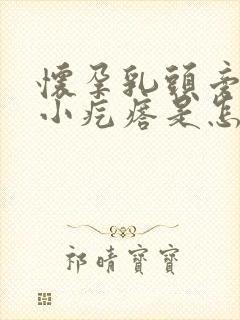 懷孕乳頭旁
小疙瘩是怎
祁晴寶寶